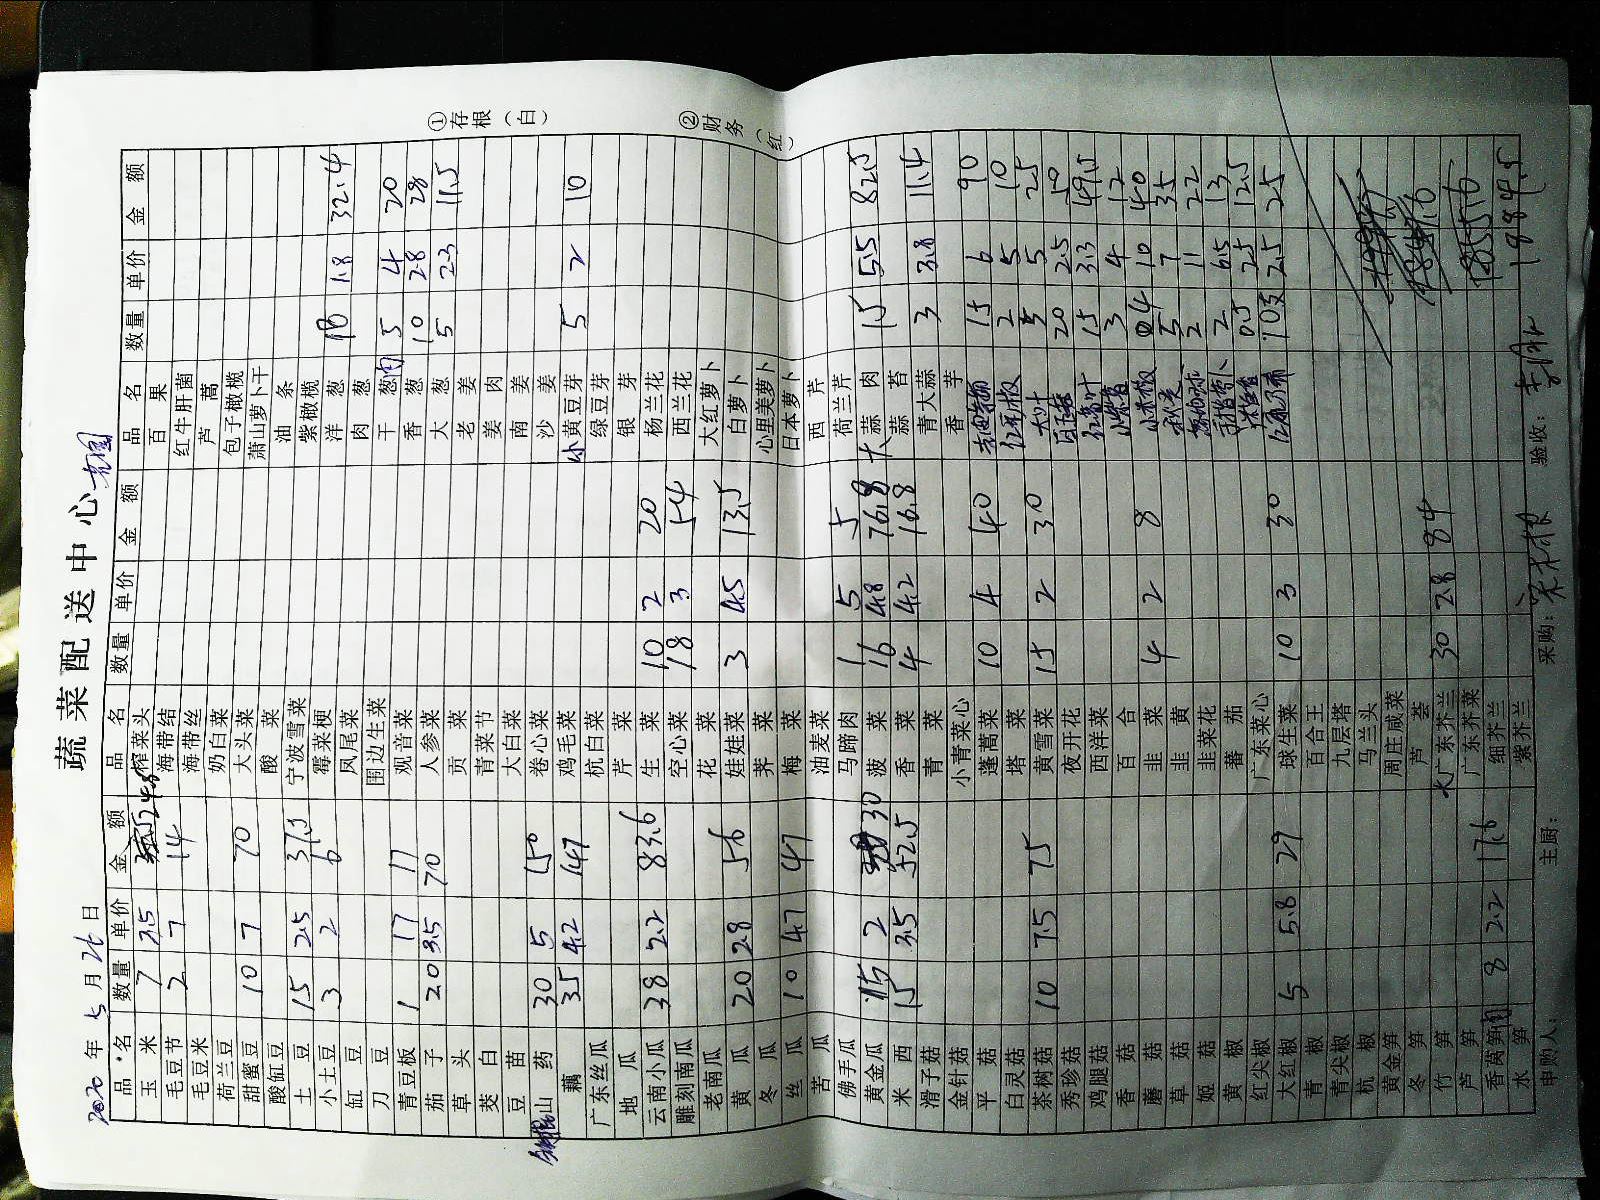 蔬菜配送中心
2020年5月26日
品名 数量 单价 金额 品名 数量 单价 金额 品名 数量 单价 金额
玉米 7 3.5 24.5 榨菜头 百果
毛豆节 2 7 14 海带结 红牛肝菌
毛豆米 海带丝 芦蒿
荷兰豆 奶白菜 包子橄榄
甜蜜豆 10 7 70 大头菜 萧山萝卜干
酸缸豆 酸菜 油条
土豆 15 2.5 37.5 宁波雪菜 紫橄榄
小土豆 3 2 6 霉菜梗 洋葱 18 1.8 32.4
缸豆 凤尾菜 肉葱
刀豆 围边生菜 干葱肉 5 4 20
青豆板 1 17 17 观音菜 香葱 10 2.8 28
茄子 20 3.5 70 人参菜 大葱 5 2.3 11.5
草头 贡菜 老姜
茭白 青菜节 姜肉
豆苗 大白菜 南姜
山药 30 5 150 卷心菜 沙姜
藕 35 4.2 147 鸡毛菜 小黄豆芽 5 2 10
广东丝瓜 杭白菜 绿豆芽
地瓜 芹菜 银芽
云南小瓜 38 2.2 83.6 生菜 10 2 20 杨兰花
雕刻南瓜 空心菜 18 3 54 西兰花
老南瓜 花菜 大红萝卜
黄瓜 20 2.8 56 娃娃菜 3 4.5 13.5 白萝卜
冬瓜 荠菜 心里美萝卜
丝瓜 10 4.7 47 梅菜 日本萝卜
苦瓜 油麦菜 西芹
佛手瓜 马蹄肉 1 5 5 荷兰芹
黄金瓜 15 2 30 菠菜 16 4.8 76.8 大蒜肉 15 5.5 82.5
米西 15 3.5 52.5 香菜 4 4.2 16.8 蒜苔
滑子菇 青菜 青大蒜 3 3.8 11.4
金针菇 小青菜心 香芋
平菇 蓬蒿菜 10 4 40 15 6 90
白灵菇 塔菜 红尖椒 2 5 10
茶树菇 10 7.5 75 黄雪菜 15 2 30 大叶 5 5 25
秀珍菇 夜开花 20 2.5 50
鸡腿菇 西洋菜 15 3.3 49.5
香菇 百合 3 4 12
蘑菇 韭菜 4 2 8 小米椒 4 10 40
草菇 韭黄 5 7 35
姬菇 韭菜花 2 11 22
黄椒 蕃茄 2 6.5 13
红尖椒 广东菜心 0.5 25 12.5
大红椒 5 5.8 29 球生菜 10 3 30 10支 2.5 25
青椒 百合王
青尖椒 九层塔
杭椒 马兰头
黄金笋 周庄咸菜
冬笋 芦荟
竹笋 大广东芥兰 30 2.8 84
芦笋 广东芥菜
香莴笋肉 8 2.2 17.6 细芥兰
水笋 紫芥兰 1884.5
申购人： 主厨： 采购： 验收：
①存根（白）
②财务（红）